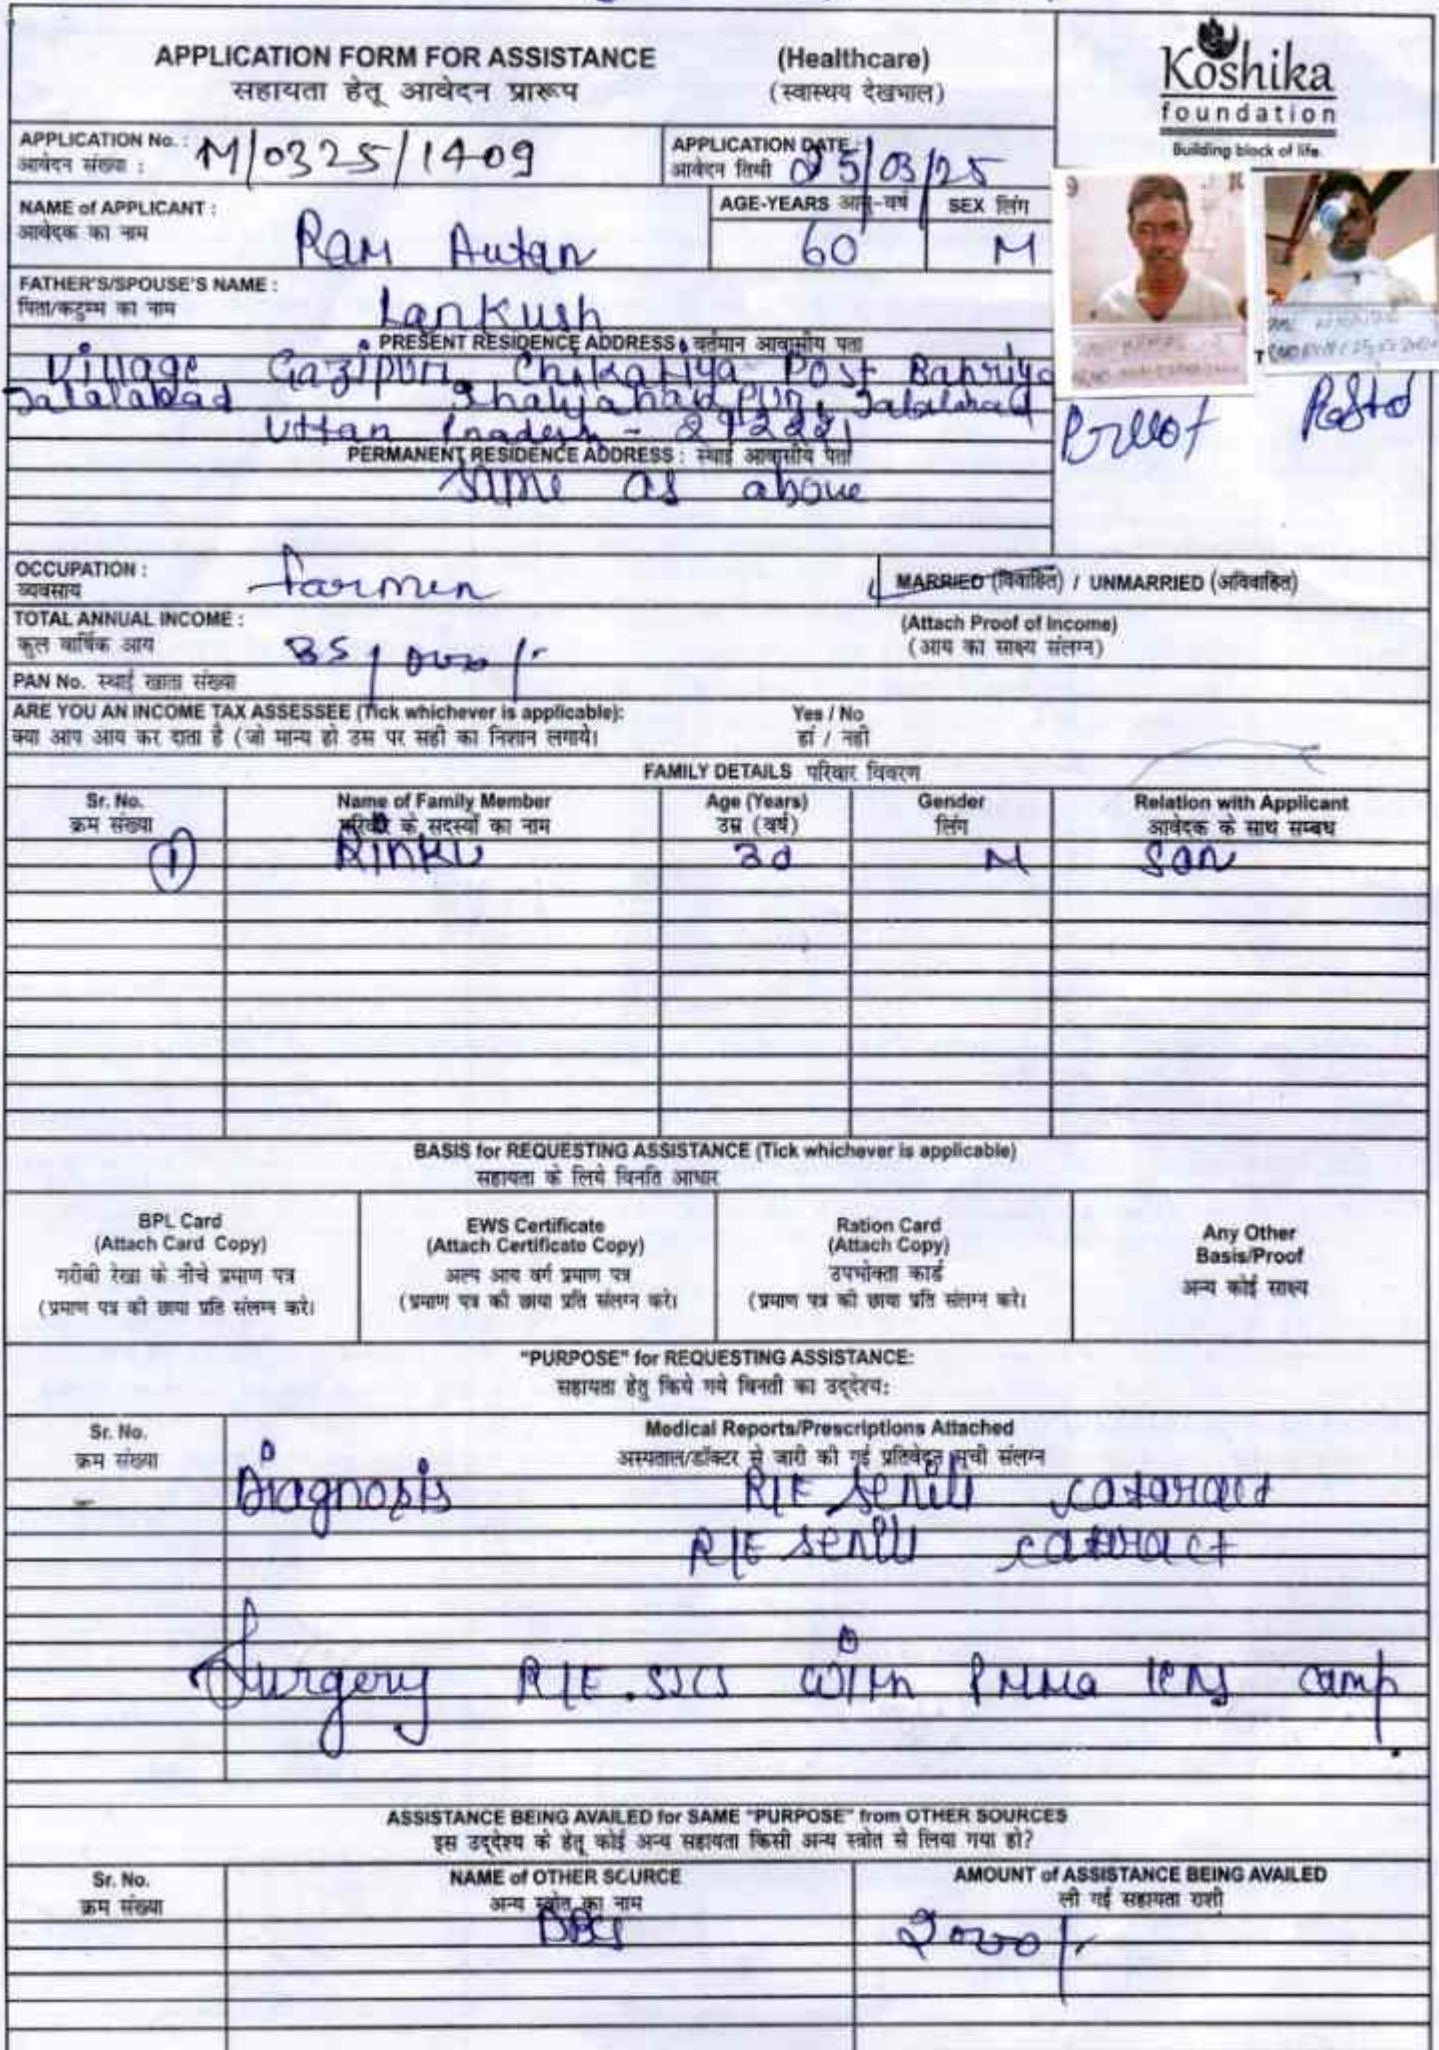 APPLICATION FORM FOR ASSISTANCE (Healthcare)
सहायता हेतू आवेदन प्रारूप (स्वास्थय देखभाल)
Koshika
foundation
Building block of life.
APPLICATION No. : M/0325/1409
आवेदन संख्या :
APPLICATION DATE : 25/03/25
आवेदन तिथी
NAME of APPLICANT : Ram Autar
आवेदक का नाम
AGE-YEARS आयु-वर्ष 60
SEX लिंग M
FATHER'S/SPOUSE'S NAME : Lankush
पिता/कटुम्ब का नाम
PRESENT RESIDENCE ADDRESS : वर्तमान आवासीय पता
Village Gazipur Chikatiya Post Bahriya
Jalalabad Shahjahanpur, Jalalabad
Uttar Pradesh - 242221
Preot Postod
PERMANENT RESIDENCE ADDRESS : स्थाई आवासीय पता
Same as above
OCCUPATION : farmer
व्यवसाय
MARRIED (विवाहित) / UNMARRIED (अविवाहित)
TOTAL ANNUAL INCOME : 35,000/-
कुल वार्षिक आय
(Attach Proof of Income)
(आय का साक्ष्य संलग्न)
PAN No. स्थाई खाता संख्या
ARE YOU AN INCOME TAX ASSESSEE (Tick whichever is applicable): Yes / No
क्या आप आय कर दाता है (जो मान्य हो उस पर सही का निशान लगाये। हां / नही
FAMILY DETAILS परिवार विवरण
Sr. No. Name of Family Member Age (Years) Gender Relation with Applicant
क्रम संख्या परिवार के सदस्यों का नाम उम्र (वर्ष) लिंग आवेदक के साथ सम्बध
1 Rinku 30 M Son
BASIS for REQUESTING ASSISTANCE (Tick whichever is applicable)
सहायता के लिये विनति आधार
BPL Card
(Attach Card Copy)
गरीबी रेखा के नीचे प्रमाण पत्र
(प्रमाण पत्र की छाया प्रति संलग्न करे।
EWS Certificate
(Attach Certificate Copy)
अल्प आय वर्ग प्रमाण पत्र
(प्रमाण पत्र की छाया प्रति संलग्न करे।
Ration Card
(Attach Copy)
उपभोक्ता कार्ड
(प्रमाण पत्र की छाया प्रति संलग्न करे।
Any Other
Basis/Proof
अन्य कोई साक्ष्य
"PURPOSE" for REQUESTING ASSISTANCE:
सहायता हेतु किये गये विनती का उद्देश्य:
Sr. No. Medical Reports/Prescriptions Attached
क्रम संख्या अस्पताल/डॉक्टर से जारी की गई प्रतिवेदन सूची संलग्न
- Diagnosis R/E senile cataract
R/E senile cataract
Surgery R/E. SICS with PMMA lens camp.
ASSISTANCE BEING AVAILED for SAME "PURPOSE" from OTHER SOURCES
इस उद्देश्य के हेतू कोई अन्य सहायता किसी अन्य स्त्रोत से लिया गया हो?
Sr. No. NAME of OTHER SOURCE AMOUNT of ASSISTANCE BEING AVAILED
क्रम संख्या अन्य स्त्रोत का नाम ली गई सहायता राशी
DBCS 2000/-